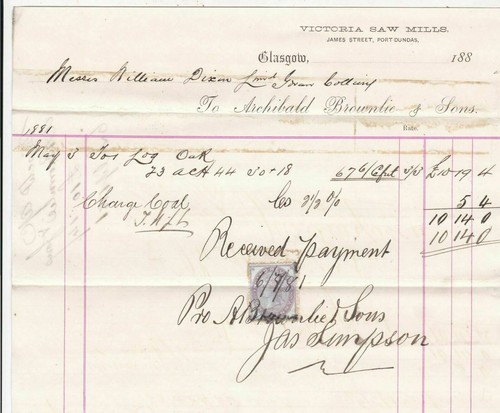 VICTORIA SAW MILLS.
JAMES STREET, PORT DUNDAS,
Glasgow, 188
Messrs William Dixon Limd Govan Colliery
To Archibald Brownlie & Sons.
Rate.
1881
May 3 To 1 Log Oak
44 18 3/3 £10 19 4
Charge Coal 2½ % 5 4
10 14 0
10 14 0
Received Payment
6/7/81
Pro A Brownlie & Sons
Jas Simpson